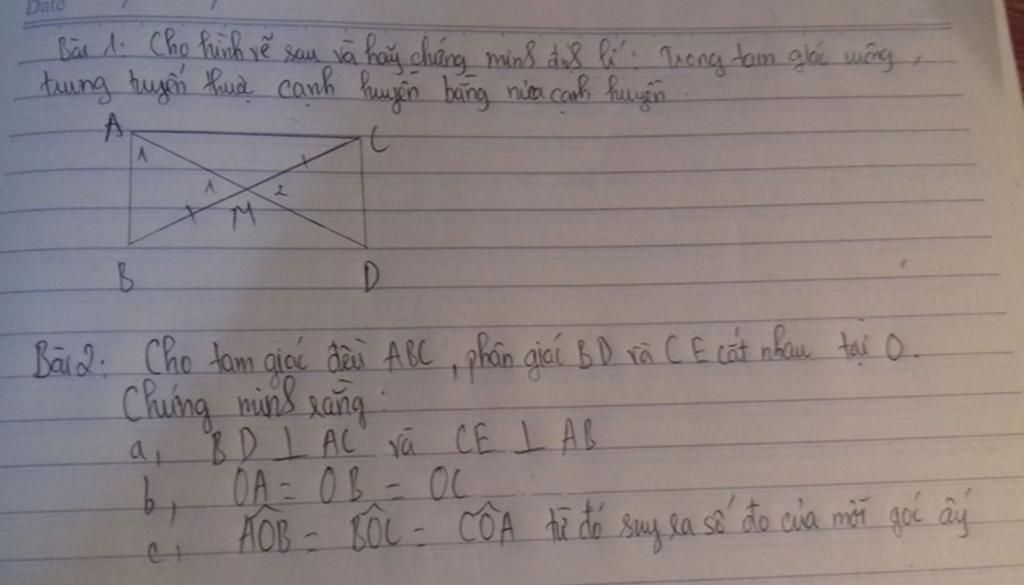 Date
Bài 1: Cho hình vẽ sau và hãy chứng minh định lí: Trong tam giác vuông,
trung tuyến thuộc cạnh huyền bằng nửa cạnh huyền.
A C
1
1 2
M
B D
Bài 2: Cho tam giác đều ABC, phân giác BD và CE cắt nhau tại O.
Chứng minh rằng:
a, BD ⊥ AC và CE ⊥ AB
b, OA = OB = OC
c, AÔB = BÔC = CÔA từ đó suy ra số đo của mỗi góc ấy